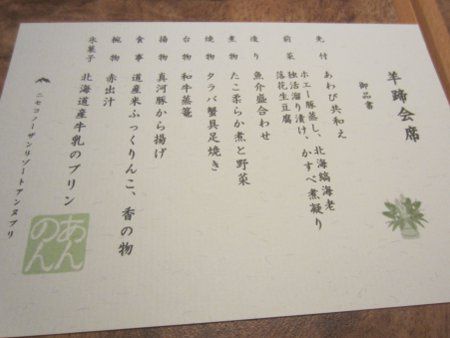 羊蹄会席
御品書
先付 あわび共和え
前菜 ホエー豚蒸し、北海縞海老
独活溜り漬け、かすべ煮凝り
落花生豆腐
造り 魚介盛合わせ
煮物 たこ柔らか煮と野菜
焼物 タラバ蟹具足焼き
台物 和牛蒸篭
揚物 真河豚から揚げ
食事 道産米ふっくりんこ、香の物
椀物 赤出汁
氷菓子 北海道産牛乳のプリン
ニセコノーザンリゾートアンヌプリ
あんのん